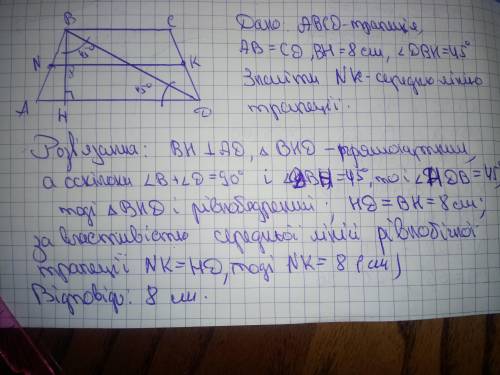 B C
N K
45°
8
45°
A H D
Дано: ABCD-трапеція,
AB = CD, BH = 8 см, ∠DBH = 45°
Знайти NK-середню лінію
трапеції.
Розв'язання: BH ⊥ AD, △ BHD - прямокутний,
а оскільки ∠B + ∠D = 90° і ∠DBH = 45°, то і ∠HDB = 45°
тоді △BHD і рівнобедрений; HD = BH = 8 см;
за властивістю середньої лінії рівнобічної
трапеції NK = HD, тоді NK = 8 (см)
Відповідь: 8 см.